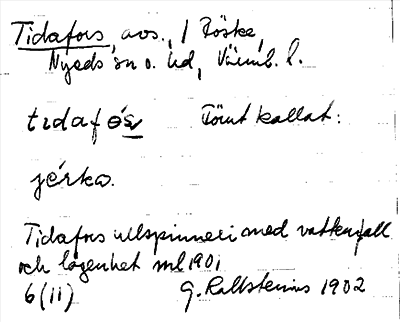 Tidafors, avs., / Böske,
Nyeds sn o. hd, Värml. l.
tɩdafós Förut kallat:
jérka.
Tidafors ullspinneri med vattenfall
och lägenhet ml 1901
6(11) G. Kallstenius 1902